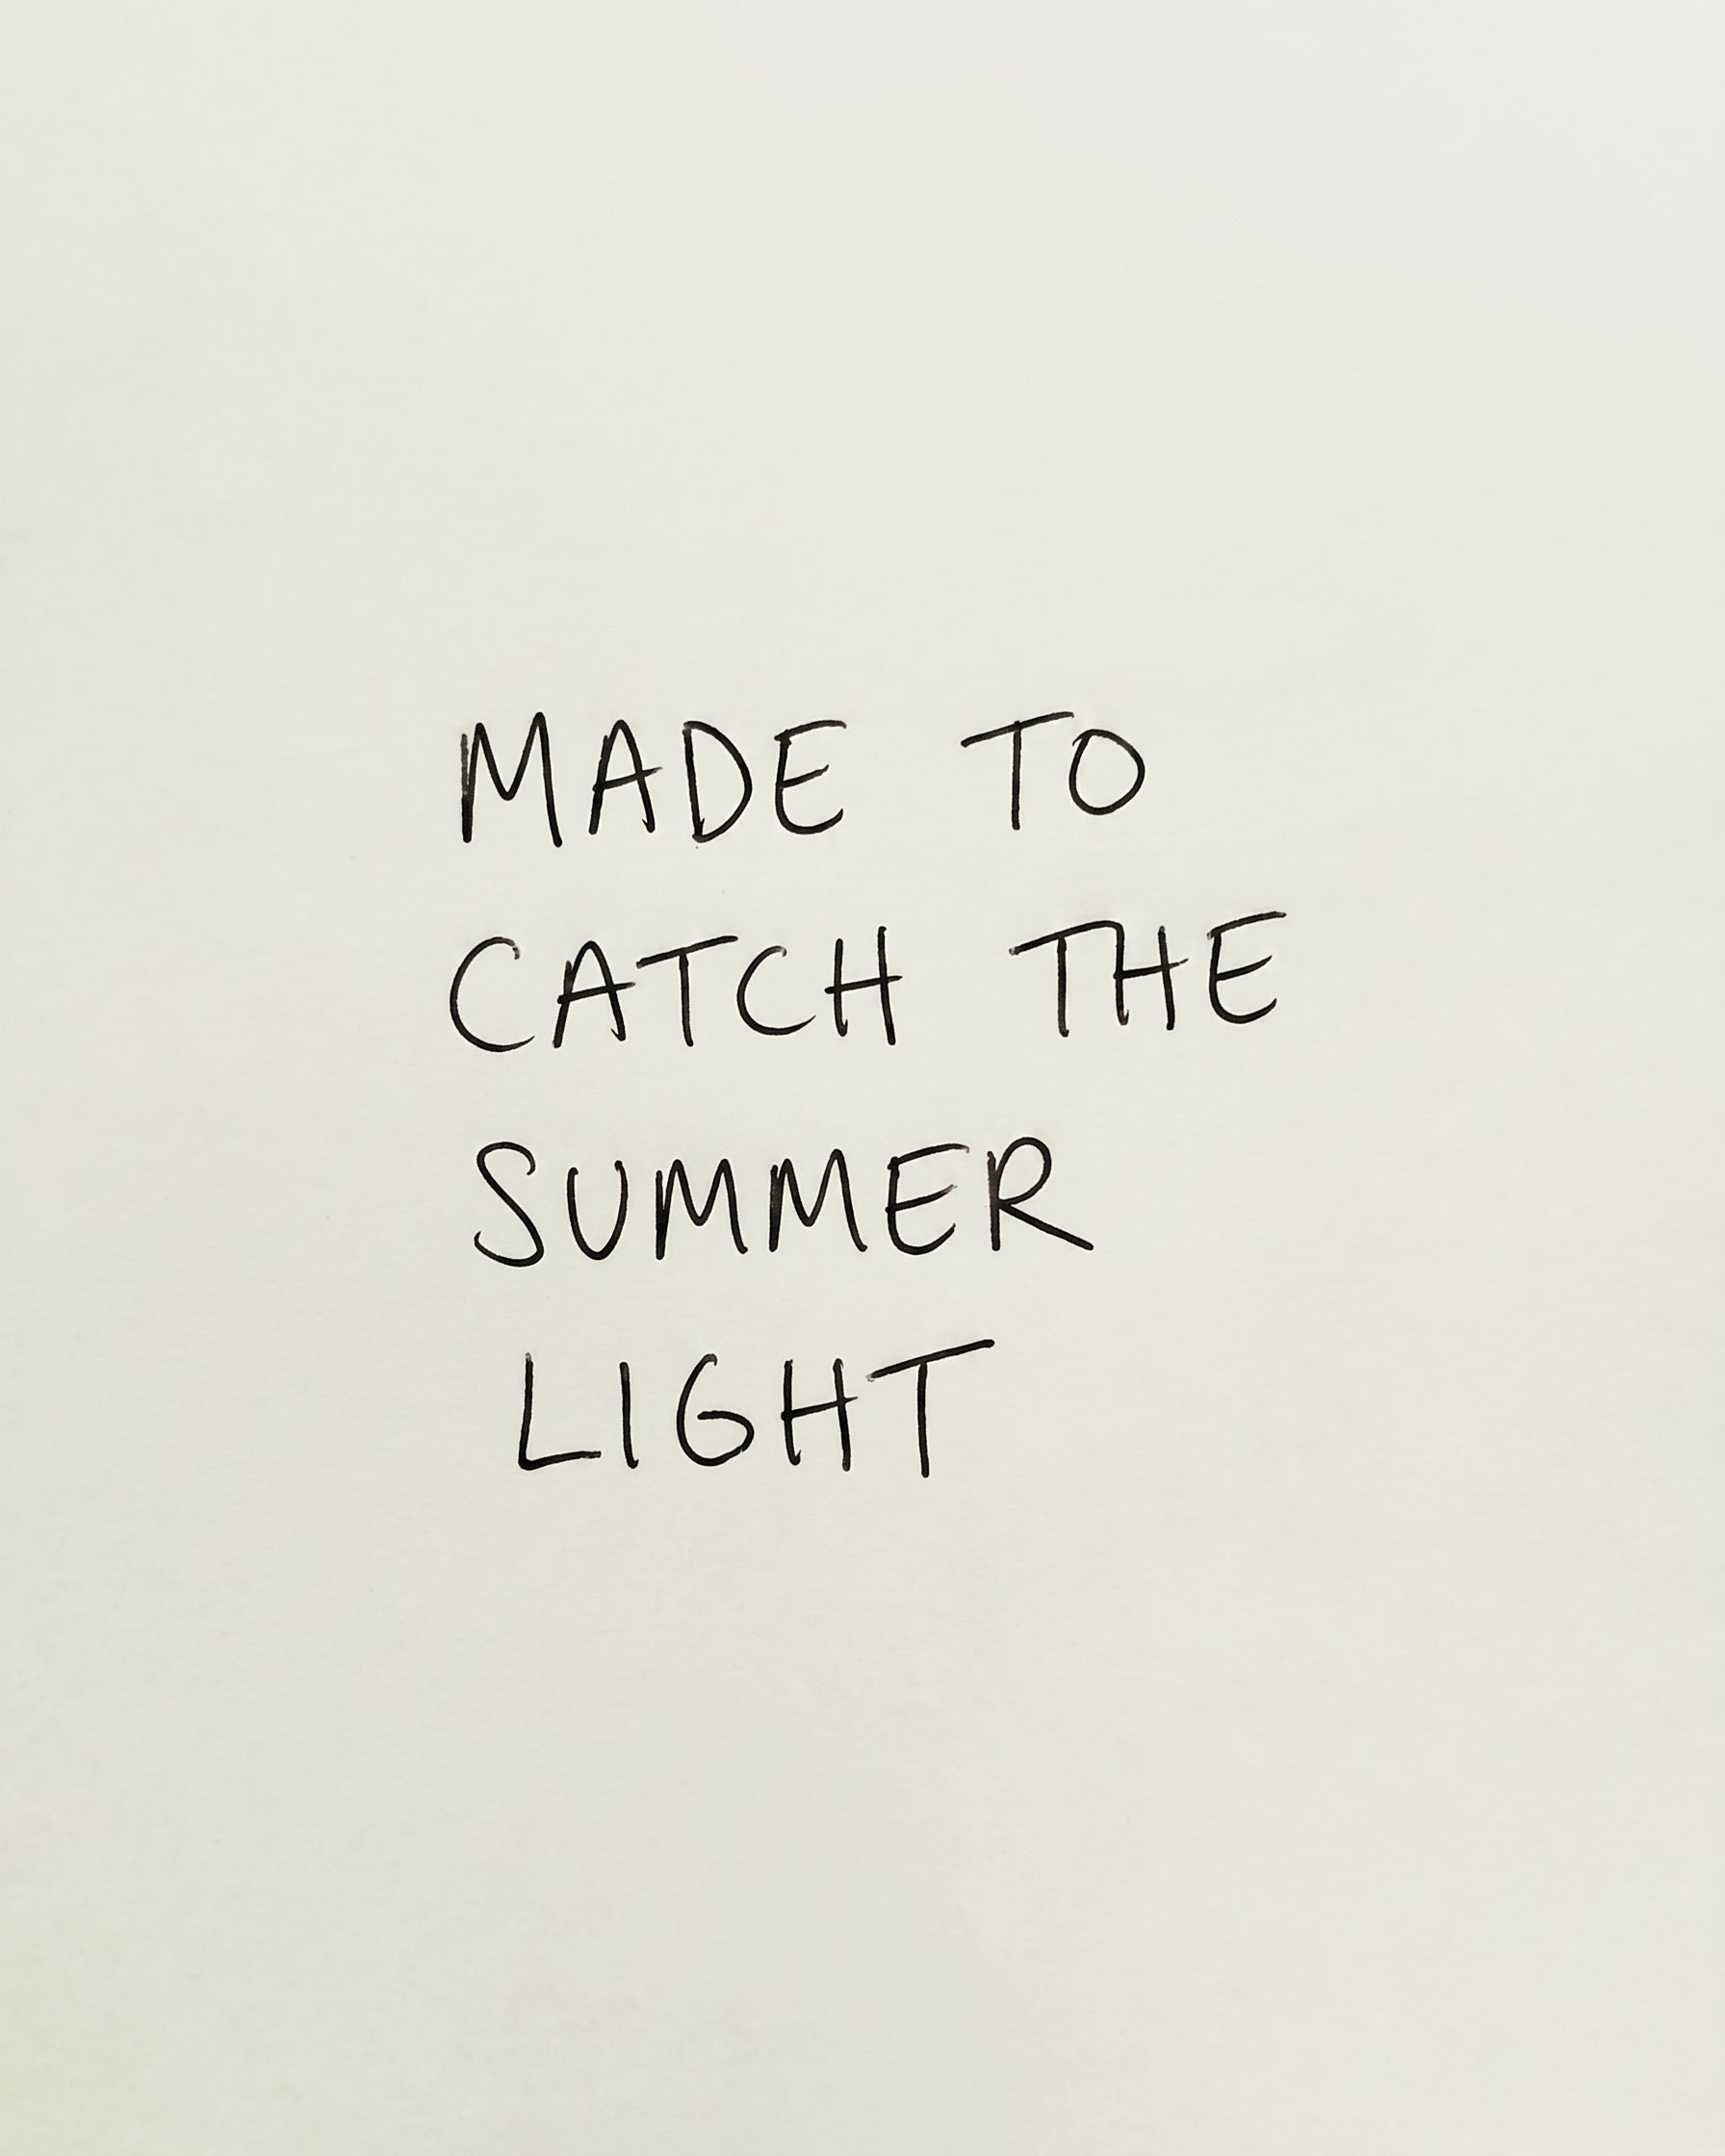 MADE TO
CATCH THE
SUMMER
LIGHT